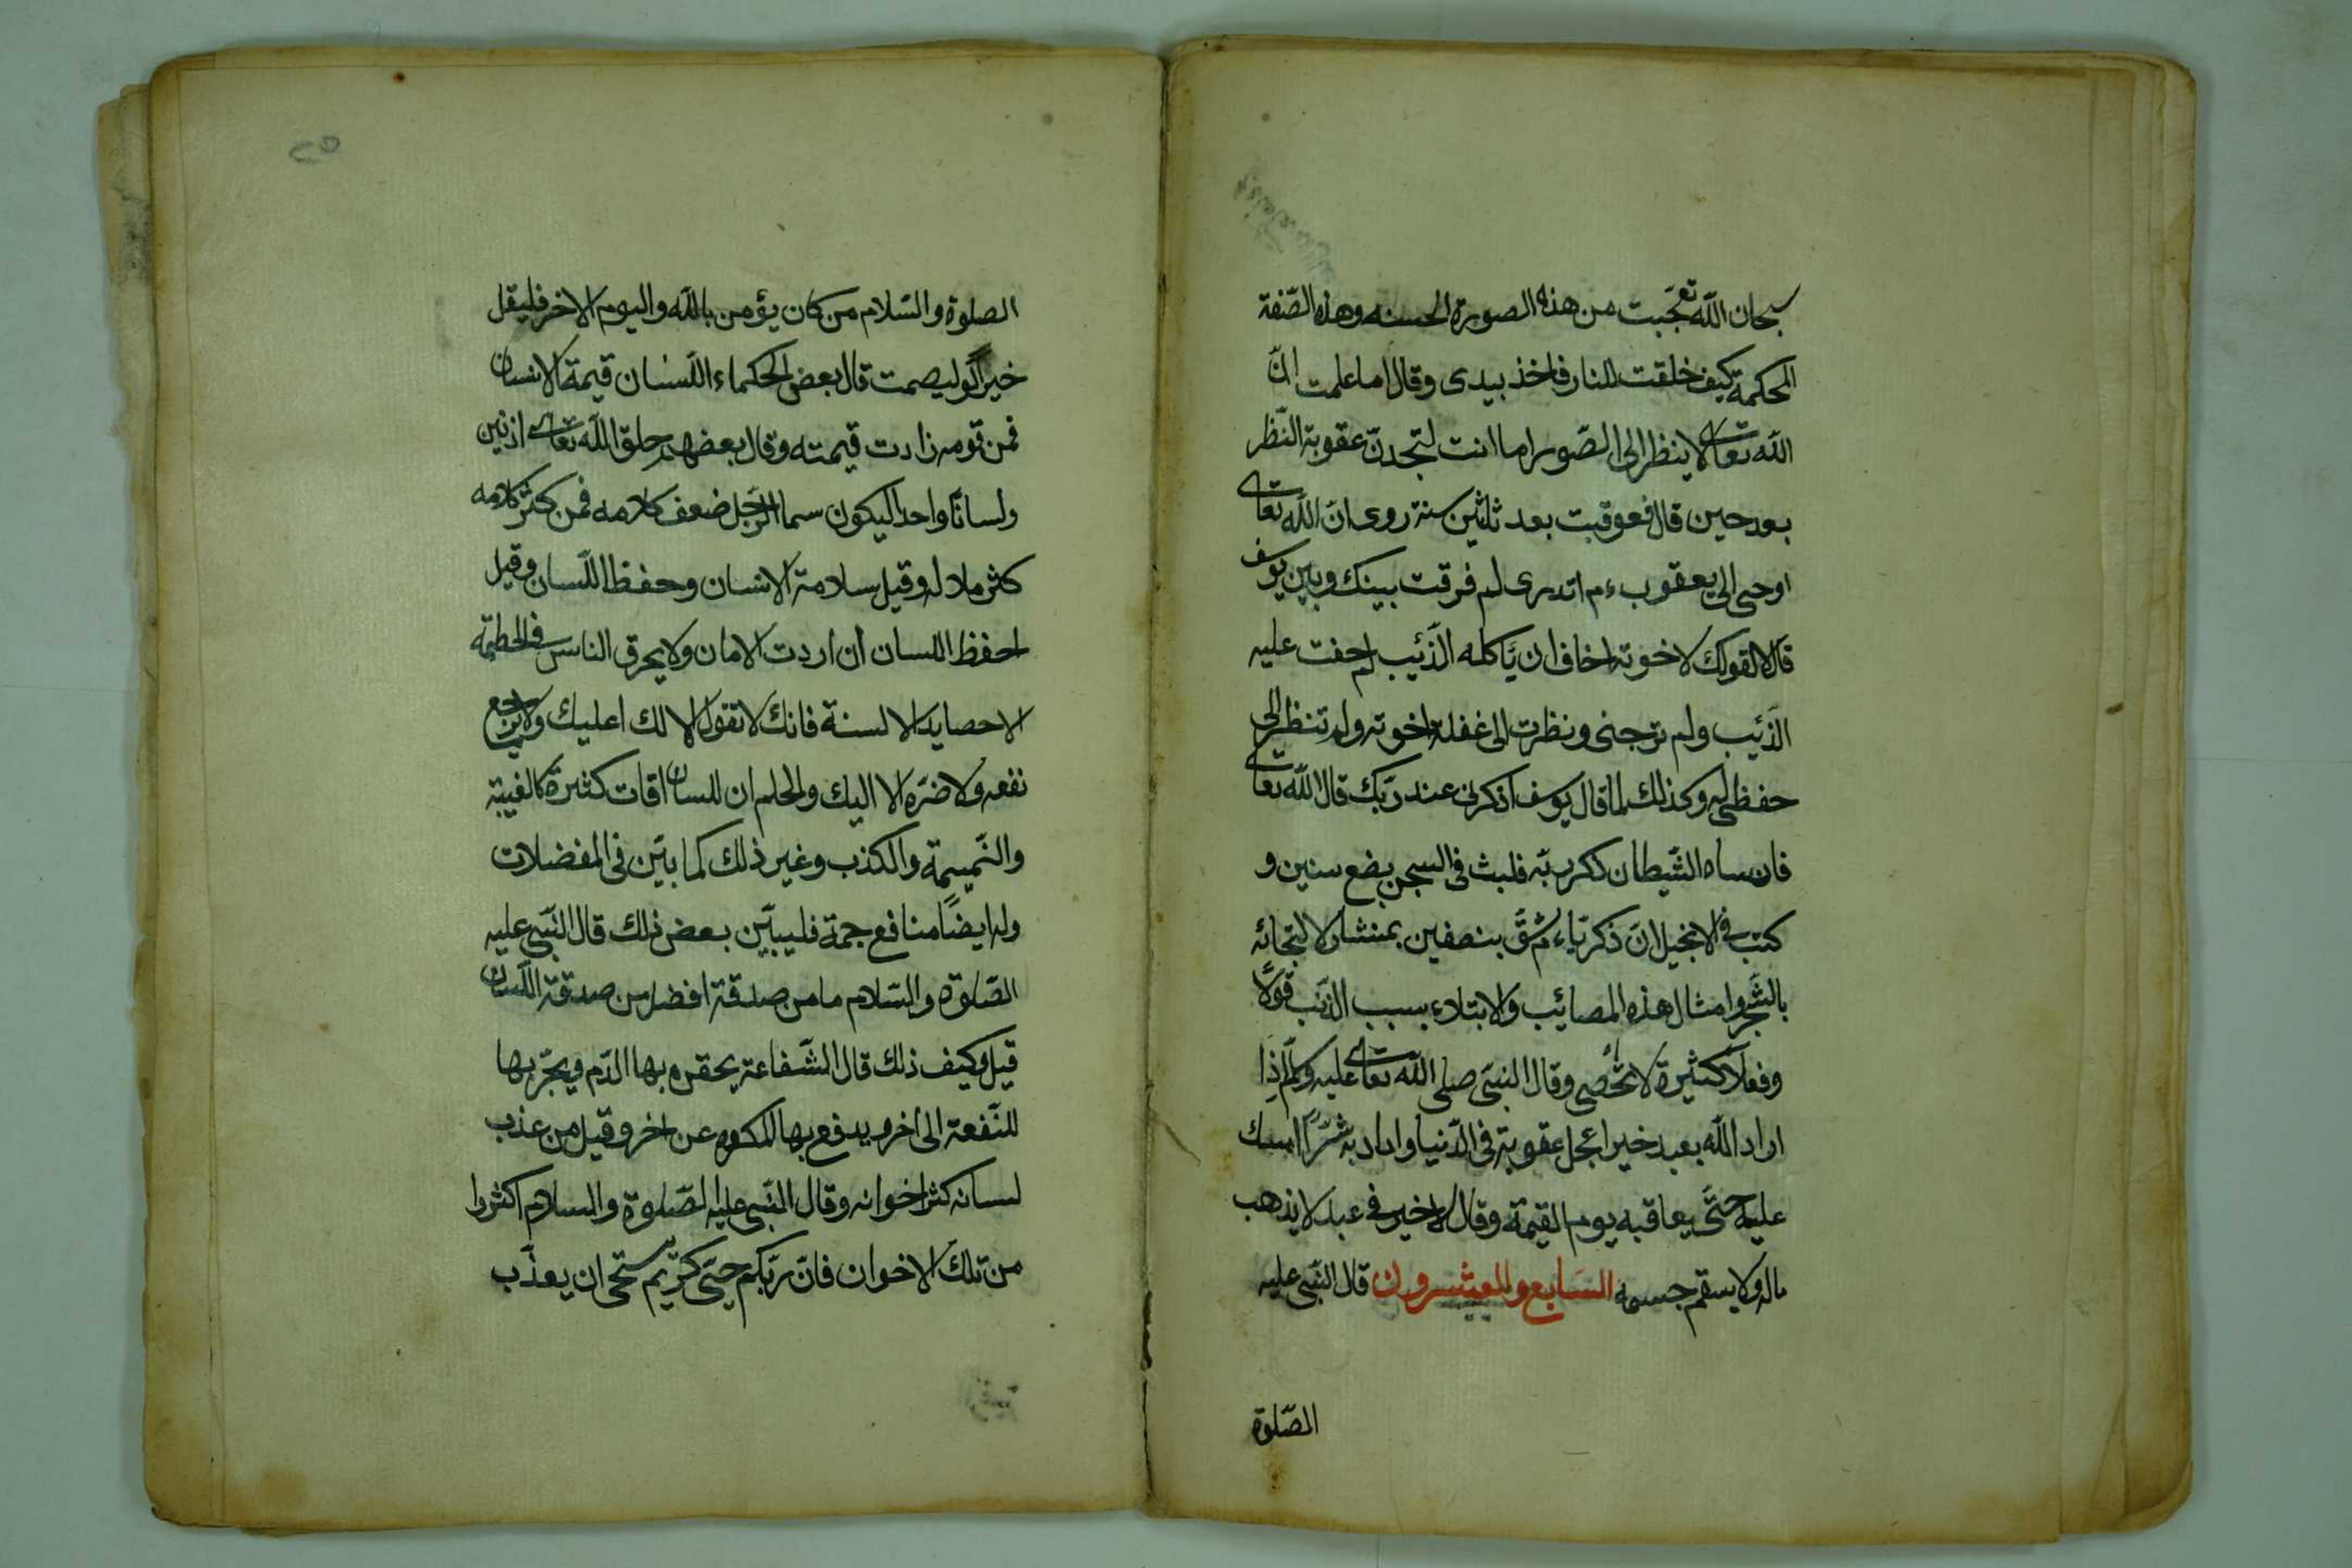 سبحان الله تعجّبت من هذه الصورة الحسنه وهذه الصّفة
المحكمة كيف خلقت للنار فاخذ بيدى وقال اما علمت انّ
الله تعالى لا ينظر الى الصّور اما انت لتجدنّ عقوبة النّظر
بعد حين قال فعوقبت بعد ثلثين سنة روى انّ الله تعالى
اوحى الى يعقوب ءم اتدرى لم فرقت بينك وبين يوسف
قال لا لقولك لاخوته اخاف ان يّاكله الذّئب لم خفت عليه
الذّئب ولم ترجنى ونظرت الى غفلة اخوته ولم تنظر الى
حفظى له وكذلك لما قال يوسف اذكرنى عند ربّك قال الله تعالى
فانساه الشّيطان ذكر ربّه فلبث فى السجن بضع سنين و
كتب فى الانجيل انّ ذكريّاء م شقّ بنصفين بمنشار لالتجائه
بالشّجر وامثال هذه المصائب والابتلاء بسبب الذّنب قولاً
وفعلاً كثيرة لا تحصى وقال النبىّ صلى الله تعالى عليه وسلّم اذا
اراد الله بعبد خيرا عجل عقوبته فى الدّنيا واذا اراد به شرًّا امسك
عليه حتّى يعاقبه يوم القيمة وقال لا خير فى عبد لا يذهب
ماله ولا يسقم جسمه السّابع والعشرون قال النّبى عليه
الصّلوة
الصلوة والسّلام من كان يؤمن بالله واليوم الاخر فليقل
خيرًا او ليصمت قال بعض الحكماء اللّسان قيمة الانسان
فمن قومه زادت قيمته وقال بعضهم خلق الله تعالى اذنين
ولسانًا واحدا ليكون سماع الرّجل ضعف كلامه فمن كثر كلامه
كثر ملاله وقيل سلامة الانسان وحفظ اللّسان وقيل
احفظ اللسان ان اردت الامان ولا يحرق الناس فى الحطمة
الا حصايد الالسنة فانك لا تقول الا لك او عليك ولا يرجع
نفعه ولا ضرّه الا اليك والحلم ان للسان افات كثيرة كالغيبة
والنّميمة والكذب وغير ذلك كما بيّن فى المفضلات
وله ايضًا منافع جمة فليبيّن بعض ذلك قال النّبى عليه
الصّلوة والسّلام ما من صدقة افضل من صدقة اللّسان
قيل وكيف ذلك قال الشّفاعة يحقن بها الدّم ويجرّ بها
للنّفعة الى اخر ويدفع بها المكروه عن اخر وقيل من عذب
لسانه كثر اخوانه وقال النّبى عليه الصّلوة والسلام اكثروا
من تلك الاخوان فانّ ربّكم حيّى كريم يستحى ان يعذّب